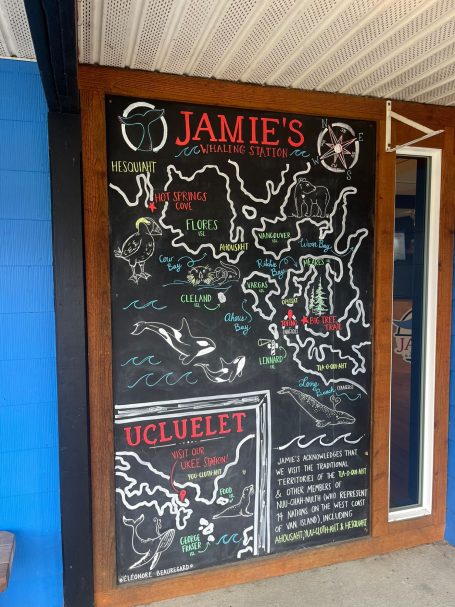 JAMIE'S
WHALING STATION
N
E
S
W
HESQUIAHT
HOT SPRINGS
COVE
FLORES
ISL
AHOUSAHT
VANCOUVER
ISL
Cow
Bay
MEARES
VARGAS
ISL
CLELAND
ISL
Ahous
Bay
OPITSAHT
TOFINO
BIG TREE
TRAIL
LENNARD
ISL
TLA-O-QUI-AHT
Long
Beach
UCLUELET
VISIT OUR
UKEE STATION!
YUU-CLUTH-AHT
FOOD
ISL
GEORGE
FRASER
ISL
JAMIE'S ACKNOWLEDGES THAT
WE VISIT THE TRADITIONAL
TERRITORIES OF THE TLA-O-QUI-AHT
& OTHER MEMBERS OF
NUU-CHAH-NULTH (WHO REPRESENT
14 NATIONS ON THE WEST COAST
OF VAN ISLAND), INCLUDING
AHOUSAHT, YUU-CLUTH-AHT & HESQUIAHT
ELÉONORE BEAUREGARD